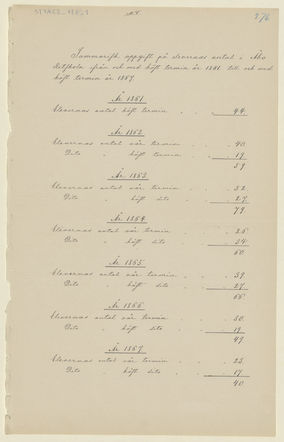 276
Summarisk uppgift på elevernas antal i Åbo
Ritskola ifrån och med höst termin år 1861 till och med
höst termin år 1867.
År 1861
Elevernas antal höst termin 44
År 1862
Elevernas antal vår termin 40
Dito höst termin 19
59
År 1863
Elevernas antal vår termin 52
Dito höst dito 27
79
År 1864
Elevernas antal vår termin 26
Dito höst dito 34
60
År 1865
Elevernas antal vår termin 39
Dito höst dito 27
66
År 1866
Elevernas antal vår termin 30
Dito höst dito 19
49
År 1867
Elevernas antal vår termin 23
Dito höst dito 17
40